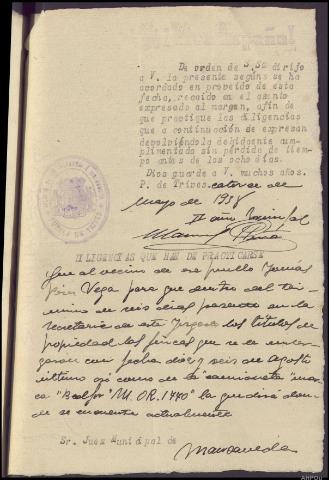 De orden de S.Sª dirijo
a V. la presente según se ha
acordado en proveído de esta
fecha, recaído en el asunto
expresado al margen, afin de
que practique las diligencias
que a continuación de expresan
devolviéndola debidamente cum-
plimentado sin pérdida de tiem-
po antes de los ocho días.
Dios guarde a V. muchos años.
P. de Trives catorce de
Mayo de 1938
II año Triunfal
DILIGENCIAS QUE HAN DE PRACTICARSE
Que al vecino de ese pueblo Tomás
Vega para que dentro del tér-
mino de seis días presente en la
Secretaría de este Juzgado los títulos de
propiedad de las fincas que se le embar-
garon con fecha diez y seis de Agosto
último así como de la camioneta mar-
ca "Bedfor" "M. OR. 1440" la que dirá don-
de se encuentra actualmente
Sr. Juez Municipal de
Manzaneda
AHPOU